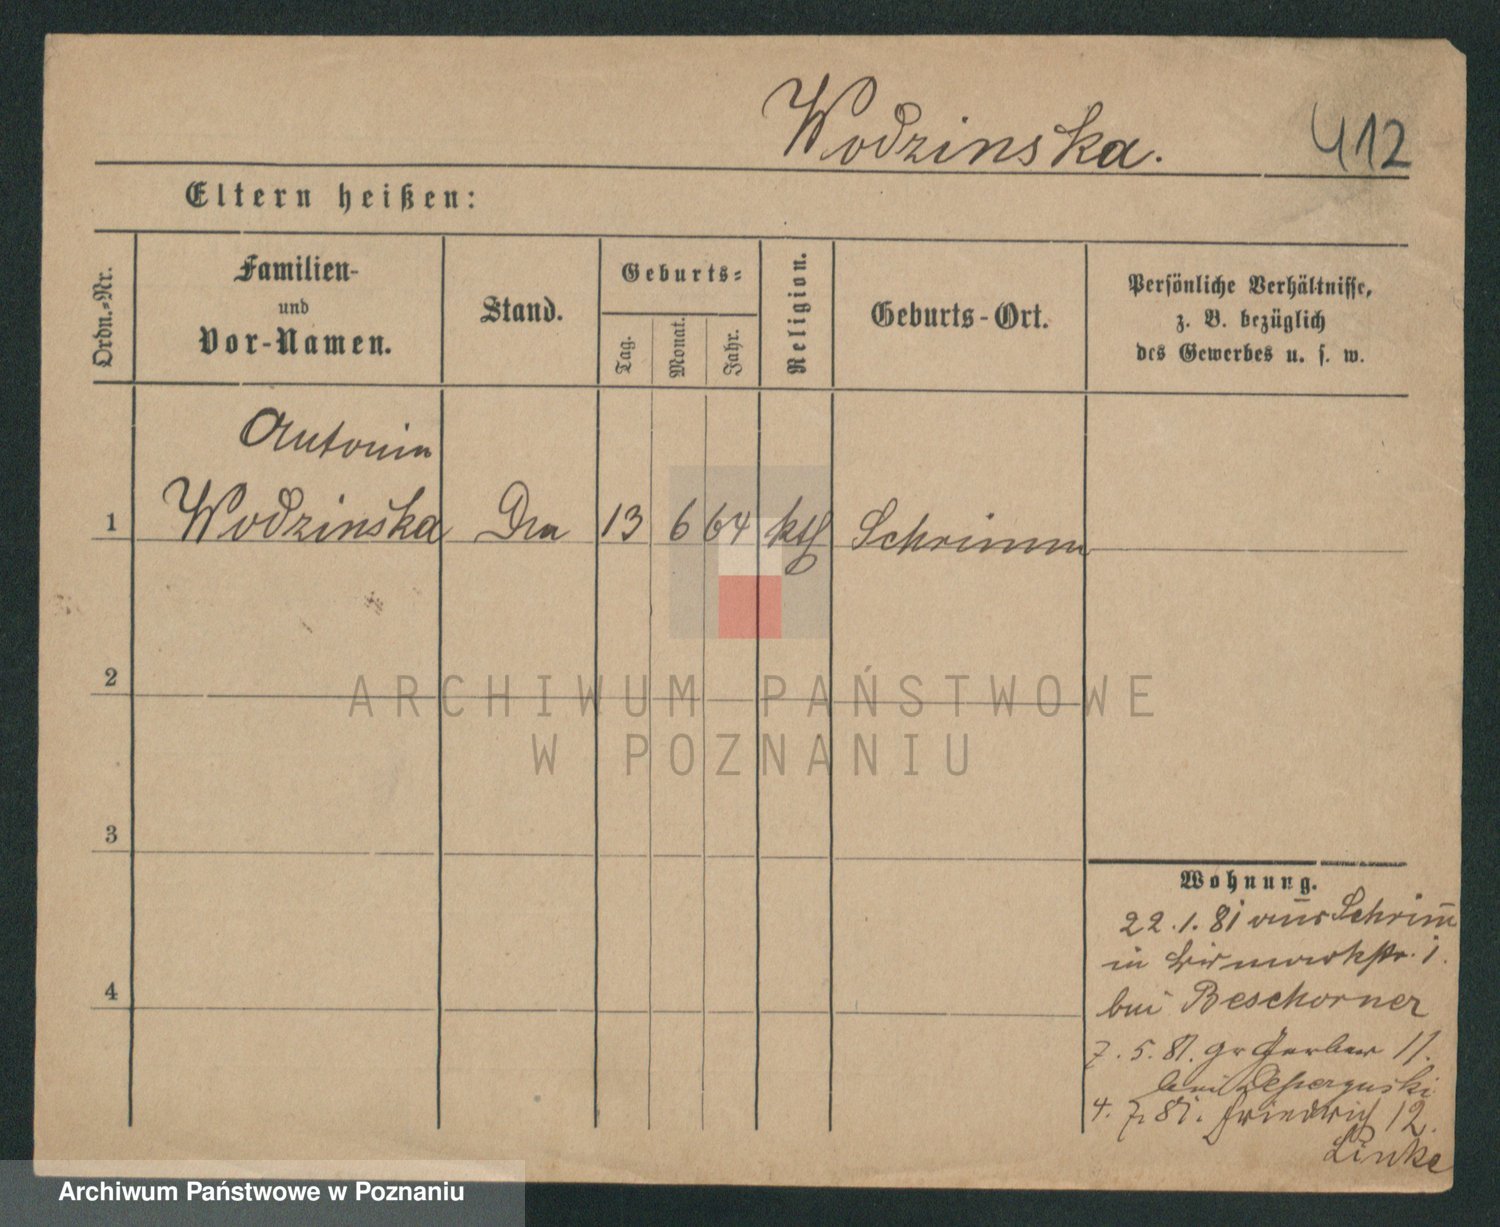 Wodzinska.
412
Eltern heißen:
Ordn.-Nr.
Familien-
und
Vor-Namen.
Stand.
Geburts-
Tag.
Monat.
Jahr.
Religion.
Geburts-Ort.
Persönliche Verhältnisse,
z. B. bezüglich
des Gewerbes u. s. w.
Antonin
1 Wodzinska 13 6 64 kth Schrimm
2
3
4
Wohnung.
22.1.81 aus Schrim̅
in Bismarkstr. 1.
bei Beschorner
7.5.81. gr Gerber 11.
bei
4.7.81. Friedrich 12.
Linke
ARCHIWUM PAŃSTWOWE
W POZNANIU
Archiwum Państwowe w Poznaniu